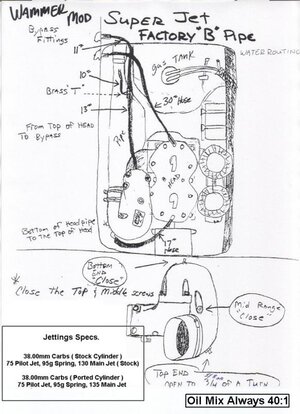 WAMMER MOD
SUPER JET
FACTORY "B" PIPE
Bypass
Fittings
11"
WATER ROUTING
gas TANK
10"
Brass "T"
13"
30" Hose
From Top of HEAD
To Bypass
Pipe
HEAD
Bottom of Head pipe
To The Top of Head
17"
Hose
Bottom
END
"Close"
* Close the Top & Middle screws
Mid Range
"Close"
Jettings Specs.
38.00mm Carbs ( Stock Cylinder )
75 Pilot Jet, 95g Spring, 130 Main Jet ( Stock)
38.00mm Carbs ( Ported Cylinder )
75 Pilot Jet, 95g Spring, 135 Main Jet
TOP END
OPEN TO 3/4 of A TURN
Oil Mix Always 40:1